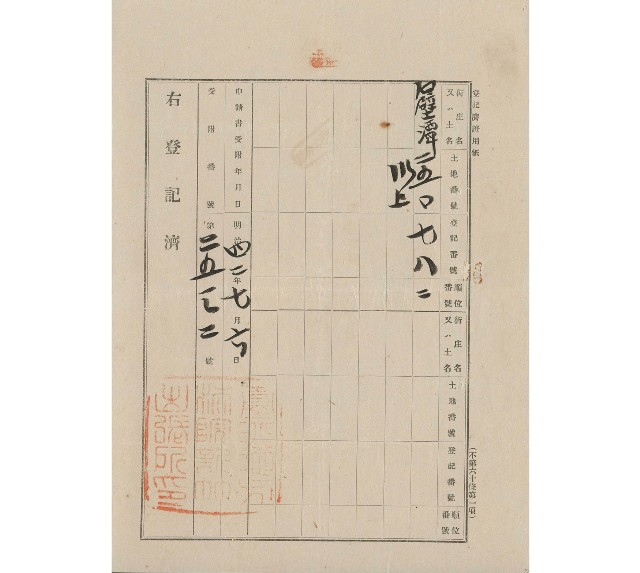 登記済証用紙
街庄名又ハ土名 土地番號 登記番號 順位番號 街庄名又ハ土名 土地番號 登記番號 順位番號
石壁潭 二五〇 七八 二
以上
申請書受附年月日 明治四二年七月六日
受附番號 第二五一二號
右登記濟
(不第六十條第一項)
出張所印